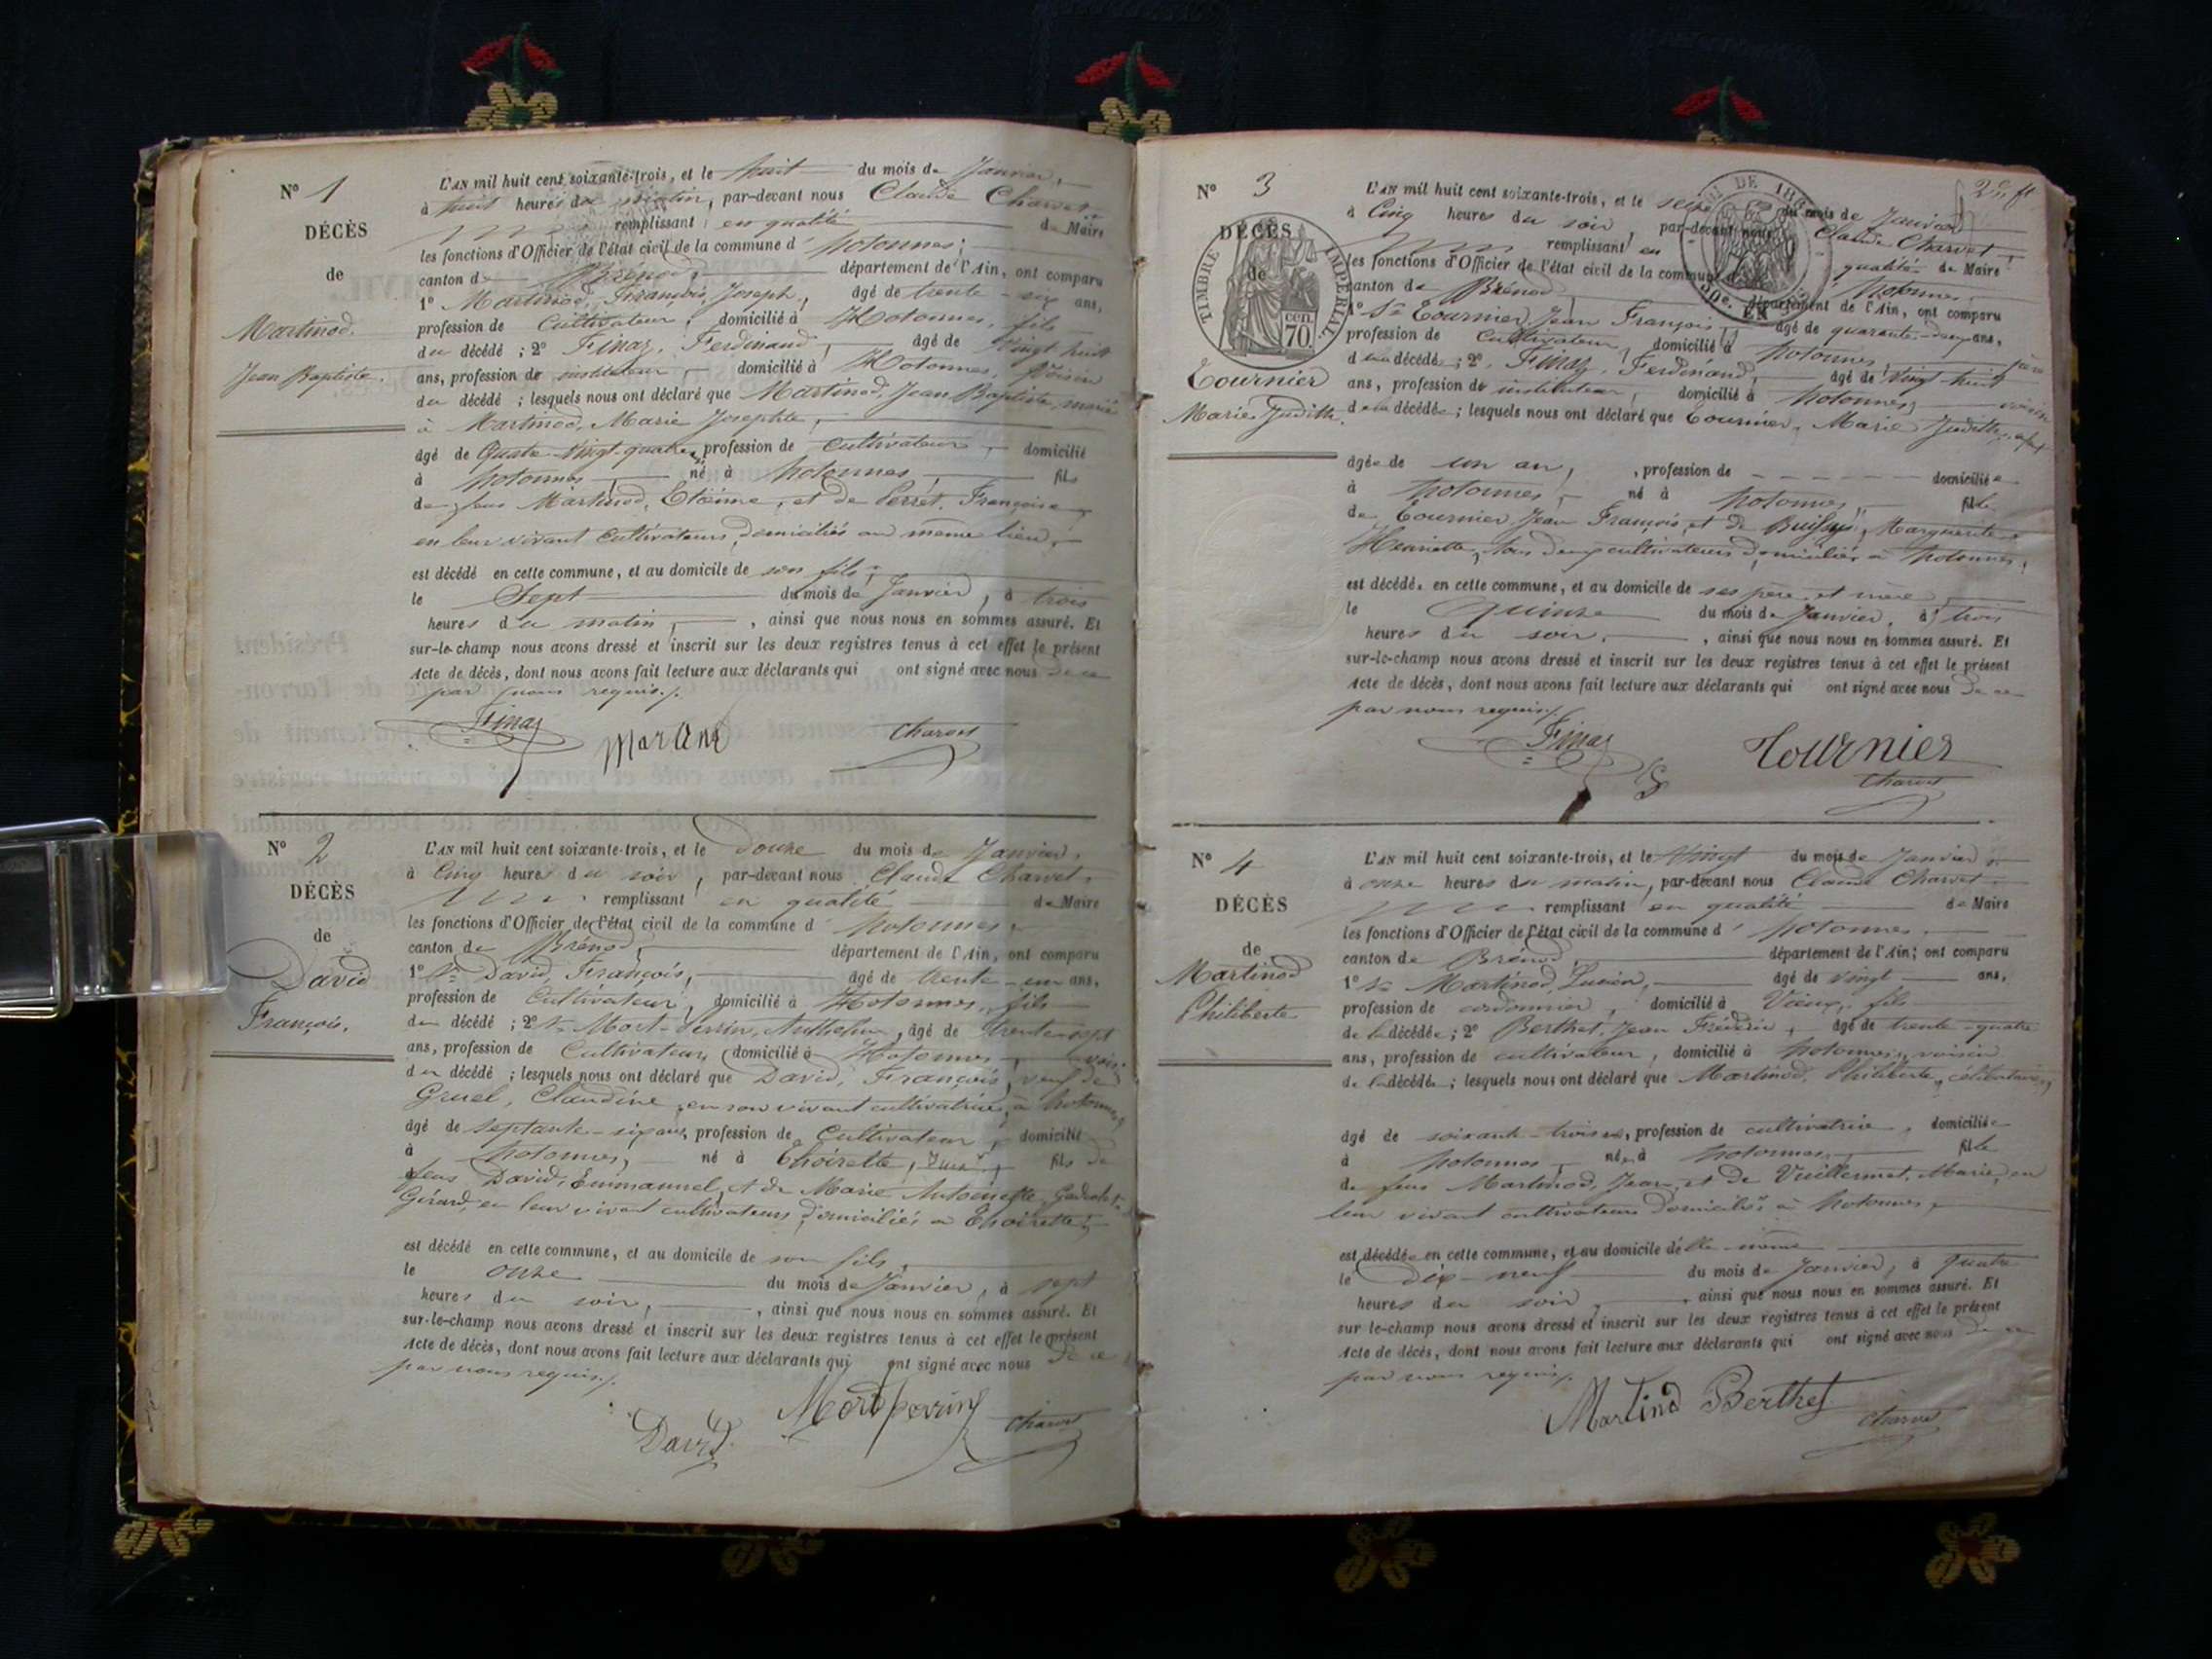 N° 1
DÉCÈS
de
Martinod.
Jean Baptiste.
L'AN mil huit cent soixante-trois, et le huit du mois de Janvier,
à huit heures du matin, par-devant nous Claude Charvet
remplissant en qualité de Maire
les fonctions d'Officier de l'état civil de la commune d' hotonnes;
canton de Brénod, département de l'Ain, ont comparu
1° Martinod, François, Joseph, âgé de trente-six ans,
profession de Cultivateur, domicilié à Hotonnes, fils
du décédé ; 2° Finaz, Ferdinand, âgé de vingt huit
ans, profession de instituteur, domicilié à Hotonnes, voisin
du décédé ; lesquels nous ont déclaré que Martinod, Jean Baptiste, marié
à Martinod, Marie Josephte,
âgé de Quatre-vingt-quatre, profession de Cultivateur, domicilié
à hotonnes, né à hotonnes, fils
de feus Martinod, Etienne, et de Perret, Françoise,
en leur vivant Cultivateurs, domiciliés au même lieu,
est décédé en cette commune, et au domicile de son fils,
le Sept du mois de Janvier, à trois
heures du matin, ainsi que nous nous en sommes assuré. Et
sur-le-champ nous avons dressé et inscrit sur les deux registres tenus à cet effet le présent
Acte de décès, dont nous avons fait lecture aux déclarants qui ont signé avec nous de ce
par nous requis.
Finaz Charvet
N° 2
DÉCÈS
de
David
François.
L'AN mil huit cent soixante-trois, et le douze du mois de Janvier,
à Cinq heures du soir, par-devant nous Claude Charvet,
remplissant en qualité de Maire
les fonctions d'Officier de l'état civil de la commune d' hotonnes,
canton de Brénod, département de l'Ain, ont comparu
1° Sr David, François, âgé de trente-un ans,
profession de Cultivateur, domicilié à Hotonnes, fils
du décédé ; 2° Sr Mort-Perrin, Anthelme, âgé de trente-sept
ans, profession de Cultivateur, domicilié à Hotonnes, voisin
du décédé ; lesquels nous ont déclaré que David, François, veuf de
Gruel, Claudine, en son vivant cultivatrice, à hotonnes,
âgé de septante-six ans, profession de Cultivateur, domicilié
à hotonnes, né à Thoirette, Jura, fils de
feus David, Emmanuel, et de Marie Antoinette,
Girard, en leur vivant cultivateurs, domiciliés à Thoirette,
est décédé en cette commune, et au domicile de son fils,
le onze du mois de Janvier, à sept
heures du soir, ainsi que nous nous en sommes assuré. Et
sur-le-champ nous avons dressé et inscrit sur les deux registres tenus à cet effet le présent
Acte de décès, dont nous avons fait lecture aux déclarants qui ont signé avec nous de ce
par nous requis.
David Mortperrin Charvet
N° 3
DÉCÈS
de
TIMBRE IMPÉRIAL
70 cen.
Tournier
Marie Judith.
L'AN mil huit cent soixante-trois, et le seize du mois de Janvier
à Cinq heures du soir, par-devant nous Claude Charvet,
remplissant en qualité de Maire
les fonctions d'Officier de l'état civil de la commune d' hotonnes
canton de Brénod département de l'Ain, ont comparu
1° Sr Tournier, Jean François, âgé de quarante-deux ans,
profession de Cultivateur, domicilié à hotonnes, père
de la décédée ; 2° Finaz, Ferdinand, âgé de vingt-huit
ans, profession de instituteur, domicilié à hotonnes, voisin
de la décédée ; lesquels nous ont déclaré que Tournier, Marie Judith,
âgée de un an, profession de domiciliée
à hotonnes, né à hotonnes fille
de Tournier, Jean François, et de Marguerite
Henriette, tous deux cultivateurs, domiciliés à hotonnes,
est décédée en cette commune, et au domicile de ses père et mère,
le quinze du mois de Janvier, à trois
heures du soir, ainsi que nous nous en sommes assuré. Et
sur-le-champ nous avons dressé et inscrit sur les deux registres tenus à cet effet le présent
Acte de décès, dont nous avons fait lecture aux déclarants qui ont signé avec nous de ce
par nous requis.
Finaz Tournier
Charvet
N° 4
DÉCÈS
de
Martinod
Philiberte
L'AN mil huit cent soixante-trois, et le Vingt du mois de Janvier
à onze heures du matin, par-devant nous Claude Charvet
remplissant en qualité de Maire
les fonctions d'Officier de l'état civil de la commune d' hotonnes
canton de Brénod, département de l'Ain; ont comparu
1° Sr Martinod, Lucien, âgé de vingt ans,
profession de cordonnier, domicilié à Vieux, fils
de la décédée ; 2° Berthet, Jean Frédéric, âgé de trente-quatre
ans, profession de cultivateur, domicilié à hotonnes, voisin
de la décédée ; lesquels nous ont déclaré que Martinod, Philiberte, célibataire,
âgé de soixante-trois ans, profession de cultivatrice, domiciliée
à hotonnes, née à hotonnes, fille
de feus Martinod, Jean, et de Vuillermet, Marie, en
leur vivant cultivateurs domiciliés à hotonnes,
est décédée en cette commune, et au domicile d'elle-même
le dix-neuf du mois de Janvier, à quatre
heures du soir, ainsi que nous nous en sommes assuré. Et
sur-le-champ nous avons dressé et inscrit sur les deux registres tenus à cet effet le présent
Acte de décès, dont nous avons fait lecture aux déclarants qui ont signé avec nous de ce
par nous requis.
Martinod Berthet
Charvet